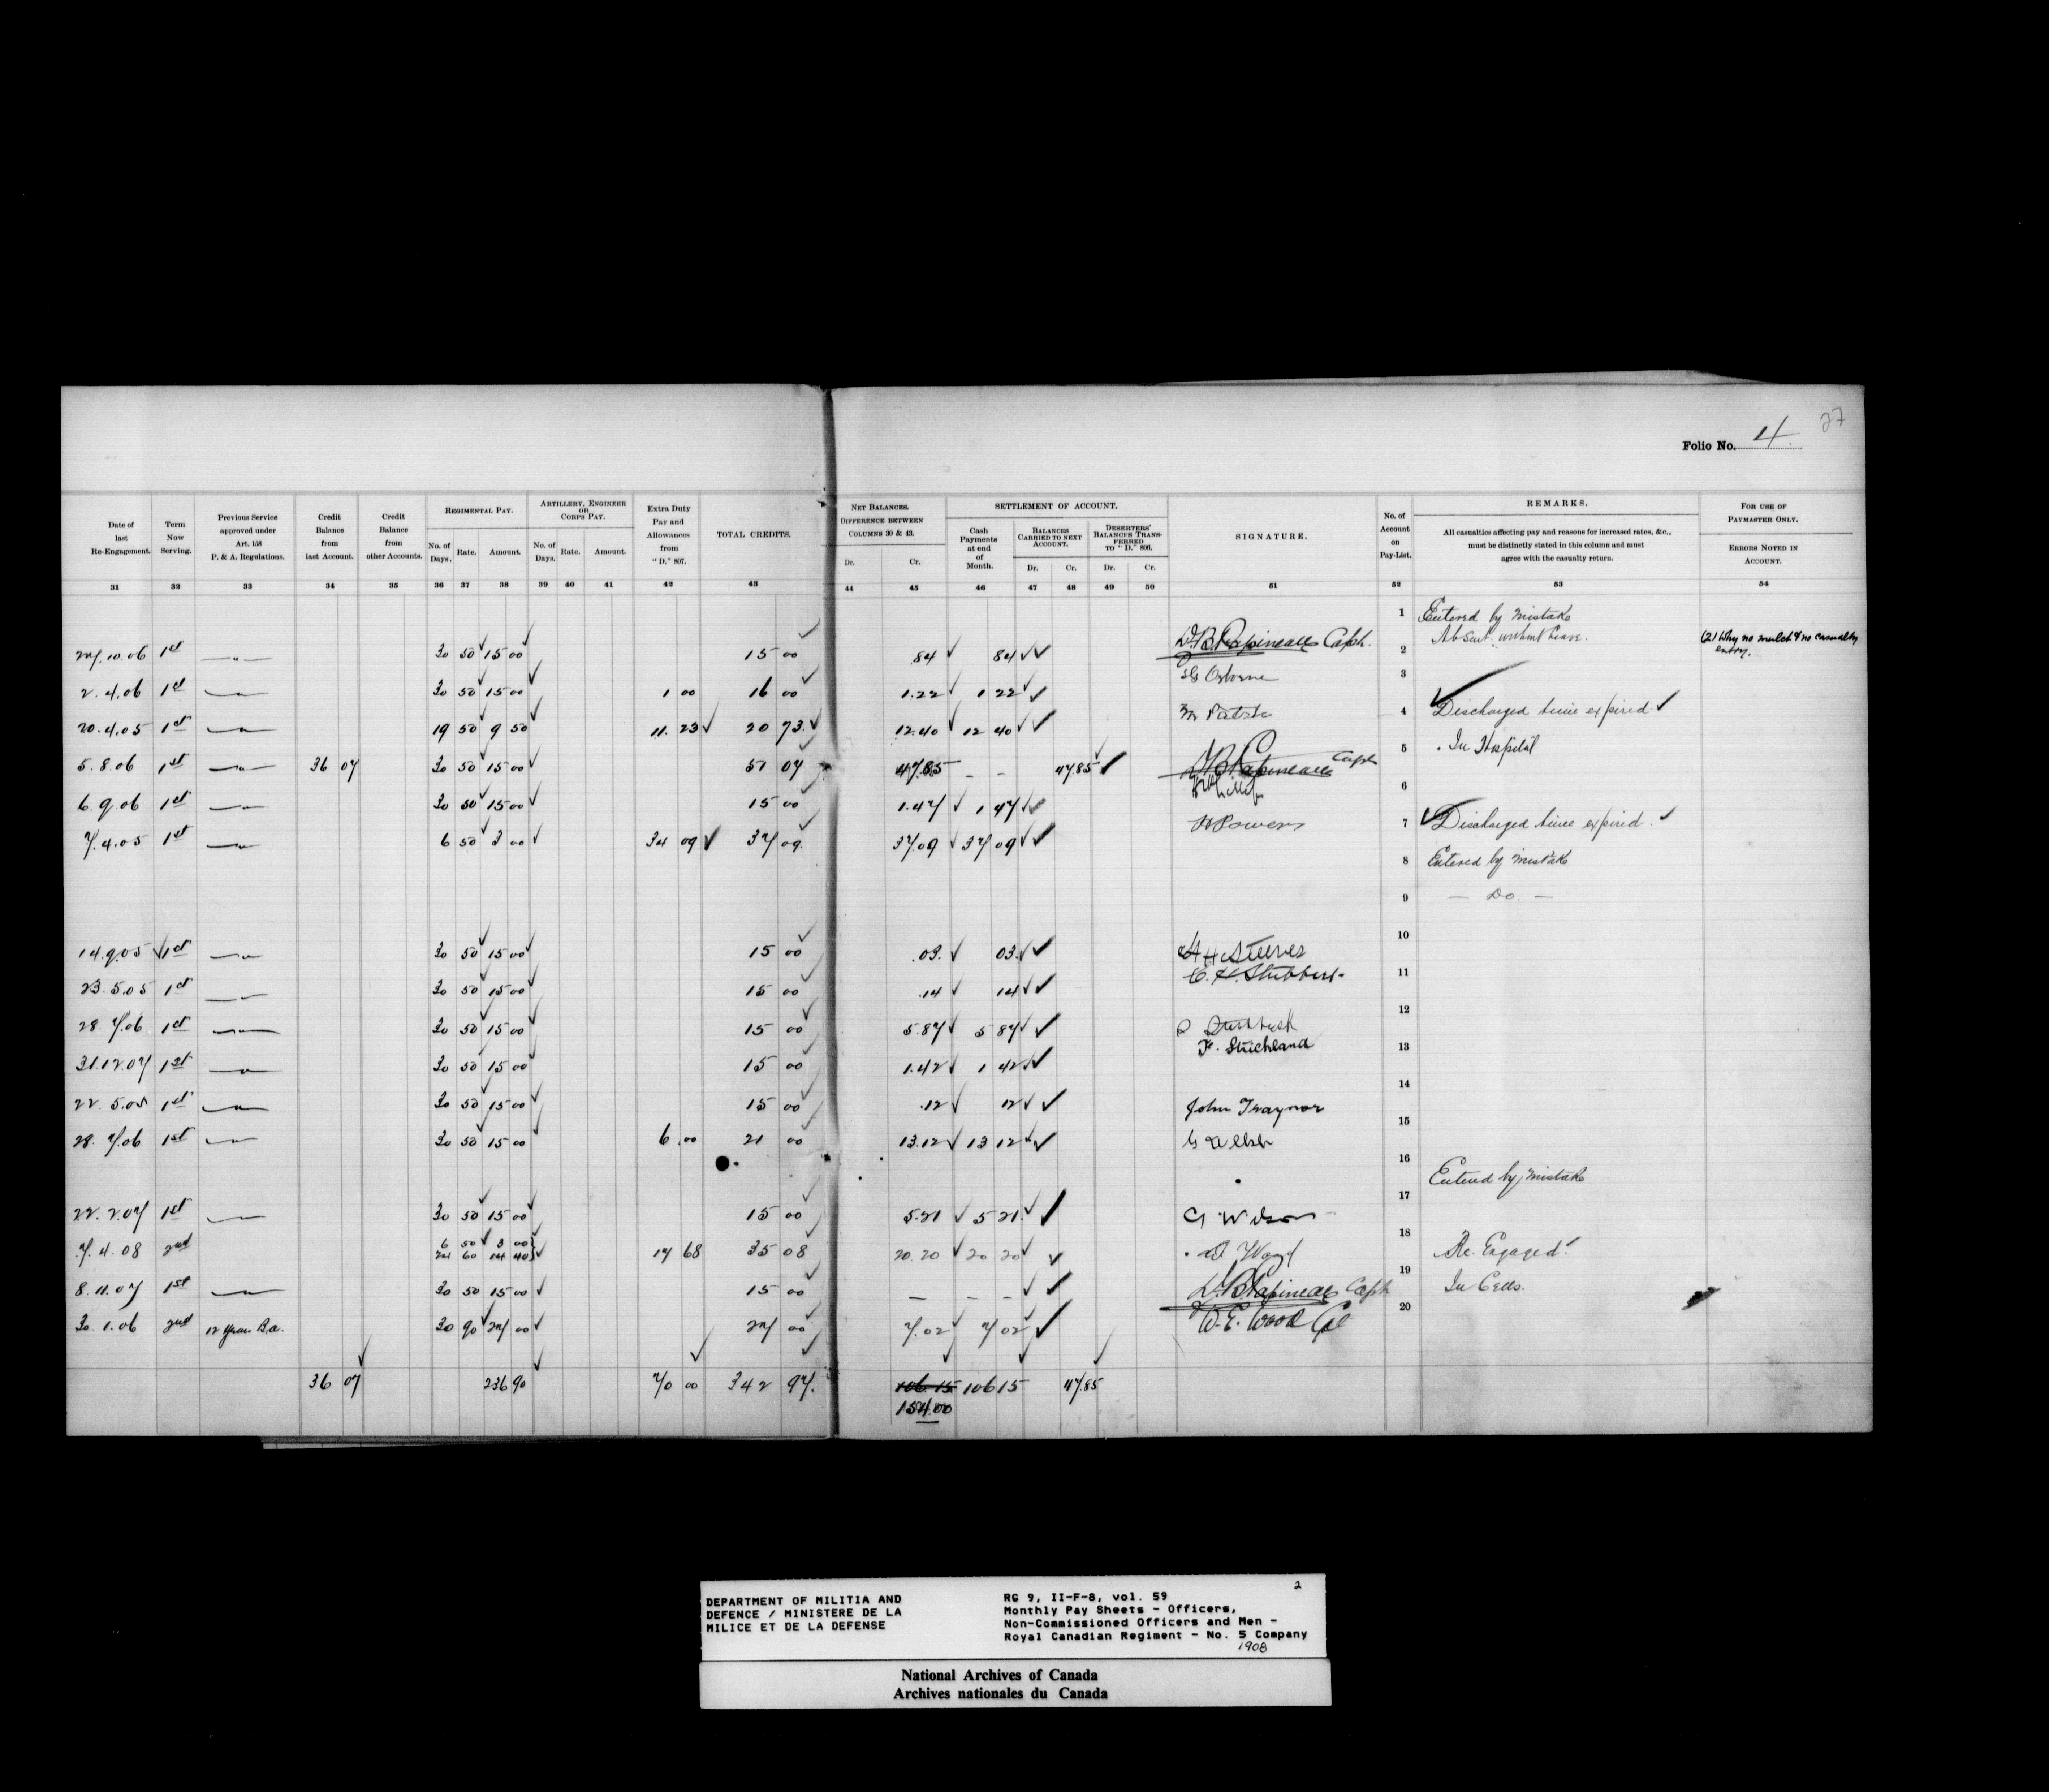 27
Folio No. 4.
Date of last Re-Engagement.
Term Now Serving.
Previous Service approved under Art. 158 P. & A. Regulations.
Credit Balance from last Account.
Credit Balance from other Accounts.
REGIMENTAL PAY.
No. of Days. Rate. Amount.
ARTILLERY, ENGINEER OR CORPS PAY.
No. of Days. Rate. Amount.
Extra Duty Pay and Allowances from "D." 807.
TOTAL CREDITS.
NET BALANCES. DIFFERENCE BETWEEN COLUMNS 30 & 43.
Dr. Cr.
SETTLEMENT OF ACCOUNT.
Cash Payments at end of Month.
BALANCES CARRIED TO NEXT ACCOUNT.
Dr. Cr.
DESERTERS' BALANCES TRANSFERRED TO "D." 806.
Dr. Cr.
SIGNATURE.
No. of Account on Pay-List.
REMARKS.
All casualties affecting pay and reasons for increased rates, &c., must be distinctly stated in this column and must agree with the casualty return.
FOR USE OF PAYMASTER ONLY.
ERRORS NOTED IN ACCOUNT.
31 32 33 34 35 36 37 38 39 40 41 42 43 44 45 46 47 48 49 50 51 52 53 54
1 Entered by mistake
27.10.06 1st — " — 30 50 15 00 15 00 .84 84 D.B. Papineau Capt. 2 Absent without leave. (2) Why no mulct & no casualty entry.
2.4.06 1st — " — 30 50 15 00 1 00 16 00 1.22 1 22 Osborne 3
20.4.05 1st — " — 19 50 9 50 11. 23 20 73. 12.40 12 40 4 Discharged time expired
5.8.06 1st — " — 36 07 30 50 15 00 51 07 47.85 – – 47.85 D.B. Papineau Capt 5 In Hospital
6.9.06 1st — " — 30 50 15 00 15 00 1.47 1 47 6
7.4.05 1st — " — 6 50 3 00 34 09 37 09. 37.09 37 09 Powers 7 Discharged time expired.
8 Entered by mistake
9 — Do. —
14.9.05 1st — " — 30 50 15 00 15 00 .03. 03. H Steeves 10
23.5.05 1st — " — 30 50 15 00 15 00 .14 14 C. H. Stubbert 11
28.7.06 1st — " — 30 50 15 00 15 00 5.87 5 87 12
31.12.07 1st — " — 30 50 15 00 15 00 1.42 1 42 F. Strickland 13
22.5.05 1st — " — 30 50 15 00 15 00 .12 12 John Traynor 14
28.7.06 1st — " — 30 50 15 00 6 .00 21 00 13.12 13 12 15
16 Entered by mistake
22.2.07 1st — " — 30 50 15 00 15 00 5.21 5 21 Wilson 17
7.4.08 2nd 6 50 3 00
24 60 14 40 17 68 35 08 20.20 20 20 18 Re. Engaged.
8.11.07 1st — " — 30 50 15 00 15 00 – – – D.B. Papineau Capt 19 In Cells.
30.1.06 2nd 12 years B.A. 30 90 27 00 27 00 7.02 7 02 W.E. Wood 20
36 07 236 90 70 00 342 97. 106 15 106 15 47.85
154.00
DEPARTMENT OF MILITIA AND
DEFENCE / MINISTERE DE LA
MILICE ET DE LA DEFENSE
2
RG 9, II-F-8, vol. 59
Monthly Pay Sheets - Officers,
Non-Commissioned Officers and Men -
Royal Canadian Regiment - No. 5 Company
1908
National Archives of Canada
Archives nationales du Canada